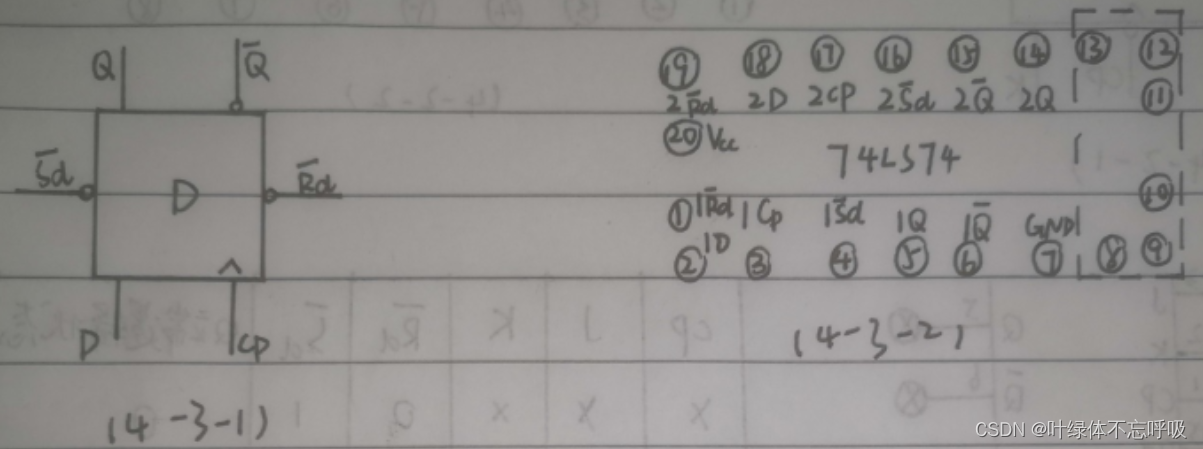 Q Q̅
S̅d D R̅d
D CP
(4-3-1)
⑲ ⑱ ⑰ ⑯ ⑮ ⑭ ⑬ ⑫
2R̅d 2D 2CP 2S̅d 2Q̅ 2Q ⑪
⑳ Vcc 74LS74
⑩
① 1R̅d 1CP 1S̅d 1Q 1Q̅ GND
② 1D ③ ④ ⑤ ⑥ ⑦ ⑧ ⑨
(4-3-2)
CSDN @叶绿体不忘呼吸